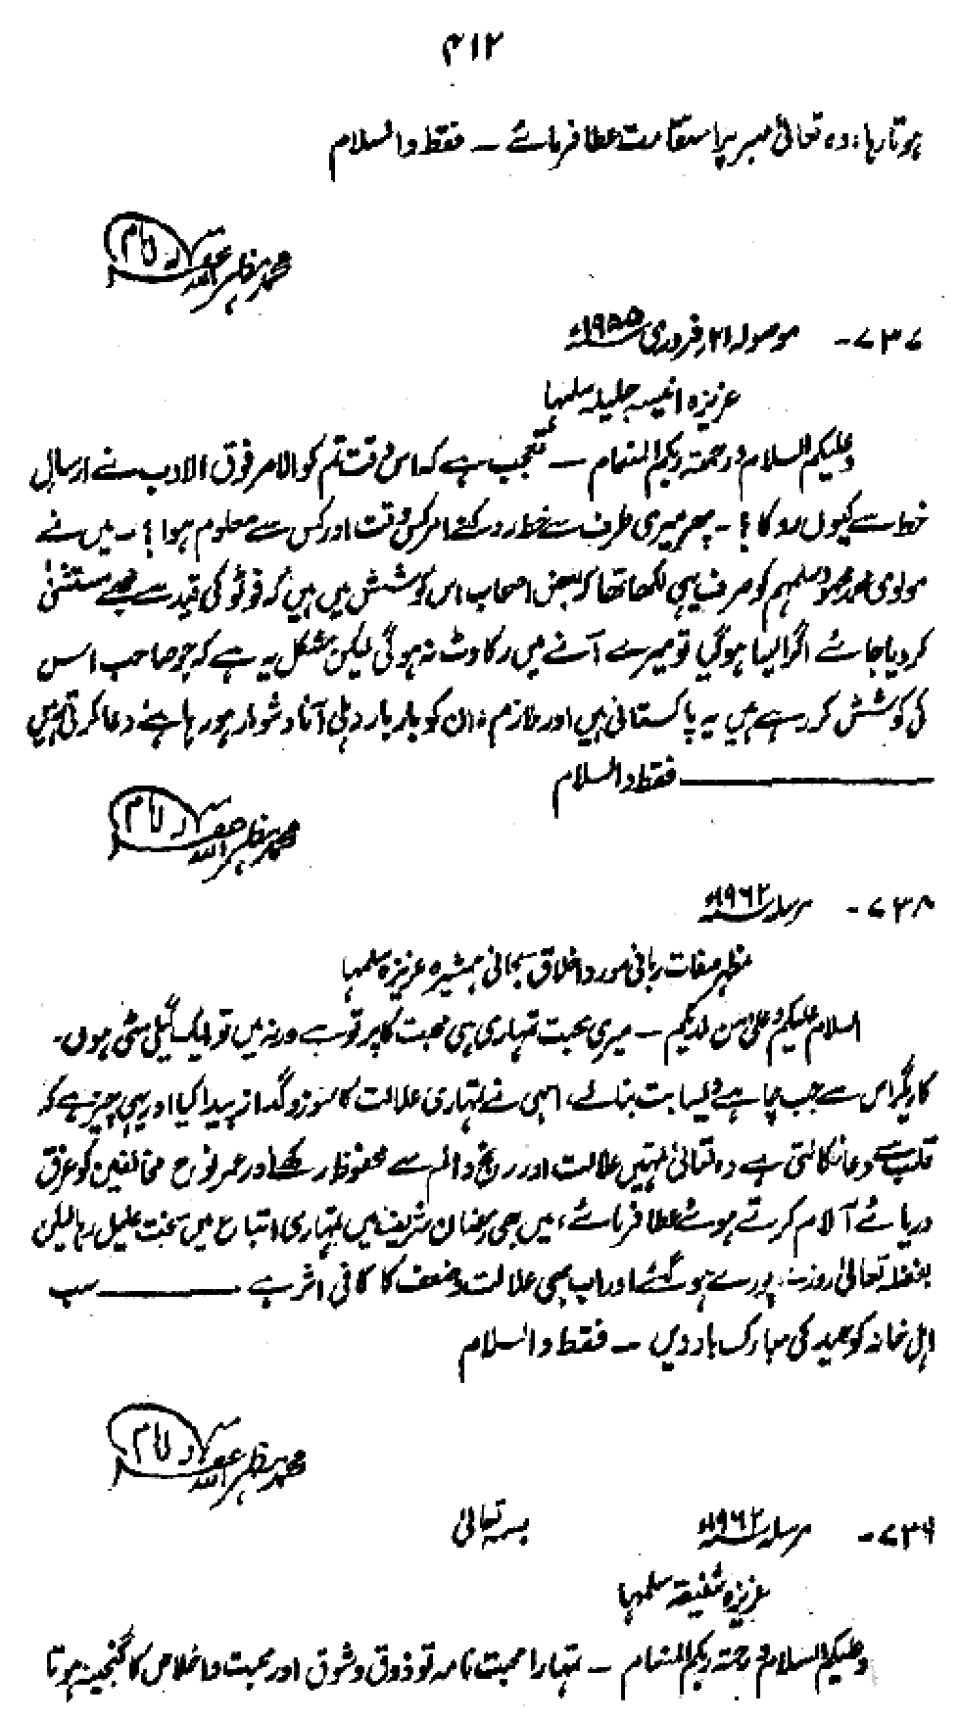 ۴۱۲
ہوتا رہا، وہ تعالیٰ صبر پر استقامت عطا فرمائے ۔ فقط والسلام
محمد مظہر اللہ غفرلہ امام
۷۳۷- موصولہ ۲۱ فروری ۱۹۵۵ء
عزیزہ انیسہ جلیلہ سلمہا
وعلیکم السلام ورحمۃ ربکم المنعام ۔ تعجب ہے کہ اس وقت تم کو الامر فوق الادب نے ارسال
خط سے کیوں روکا؟ ۔ پھر میری طرف سے خط روکنے امر کس وقت اور کس سے معلوم ہوا؟ ۔ میں نے
مولوی محمد محمود سلمہم کو صرف یہی لکھا تھا کہ بعض اصحاب اس کوشش میں ہیں کہ فوٹو کی قید سے مجھے مستثنیٰ
کر دیا جائے اگر ایسا ہو گیا تو میرے آنے میں رکاوٹ نہ ہوگی لیکن مشکل یہ ہے کہ جو صاحب اس
کی کوشش کر رہے ہیں یہ پاکستانی ہیں اور ملازم، ان کو بار بار دہلی آنا دشوار ہو رہا ہے دعا کرتی رہیں
فقط والسلام
محمد مظہر اللہ غفرلہ امام
۷۳۸- مرسلہ ۱۹۶۲ء
مظہر صفات ربانی مورد اخلاق سبحانی ہمشیرہ عزیزہ سلمہا
السلام علیکم وعلیٰ من لدیکم ۔ میری محبت تمہاری ہی محبت کا پرتو ہے ورنہ میں تو ایک گیلی مٹی ہوں۔
کاریگر اس سے جب چاہے جیسا بت بنائے، اسی نے تمہاری علالت کا سوز و گداز پیدا کیا اور یہی چیز ہے کہ
قلب سے دعا نکالتی ہے وہ تعالیٰ تمہیں علالت اور رنج و الم سے محفوظ رکھے اور عمر نوح مخالفین کو غرق
دریائے آلام کرتے ہوئے عطا فرمائے، میں بھی رمضان شریف میں تمہاری اتباع میں سخت علیل رہا لیکن
بفضلہ تعالیٰ روزے پورے ہو گئے اور اب بھی علالت وضعف کا کافی اثر ہے ــــــ سب
اہل خانہ کو عید کی مبارک باد دیں ۔ فقط والسلام
محمد مظہر اللہ غفرلہ امام
۷۳۹- مرسلہ ۱۹۶۲ء بسمہ تعالیٰ
عزیزہ شفیقہ سلمہا
وعلیکم السلام ورحمۃ ربکم المنعام ۔ تمہارا محبت نامہ تو ذوق و شوق اور محبت و اخلاص کا گنجینہ ہوتا